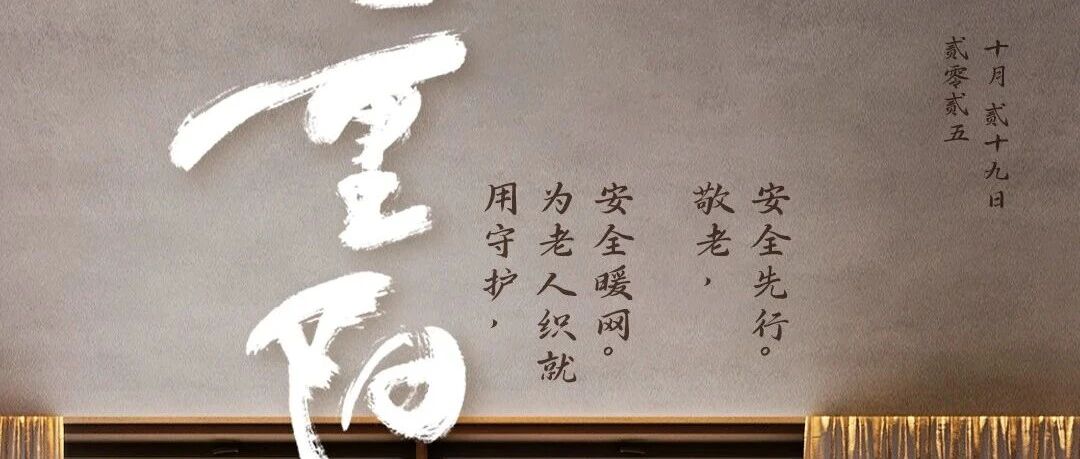 重阳
用守护，
为老人织就
安全暖网。
敬老，
安全先行。
贰零贰五
十月贰十九日